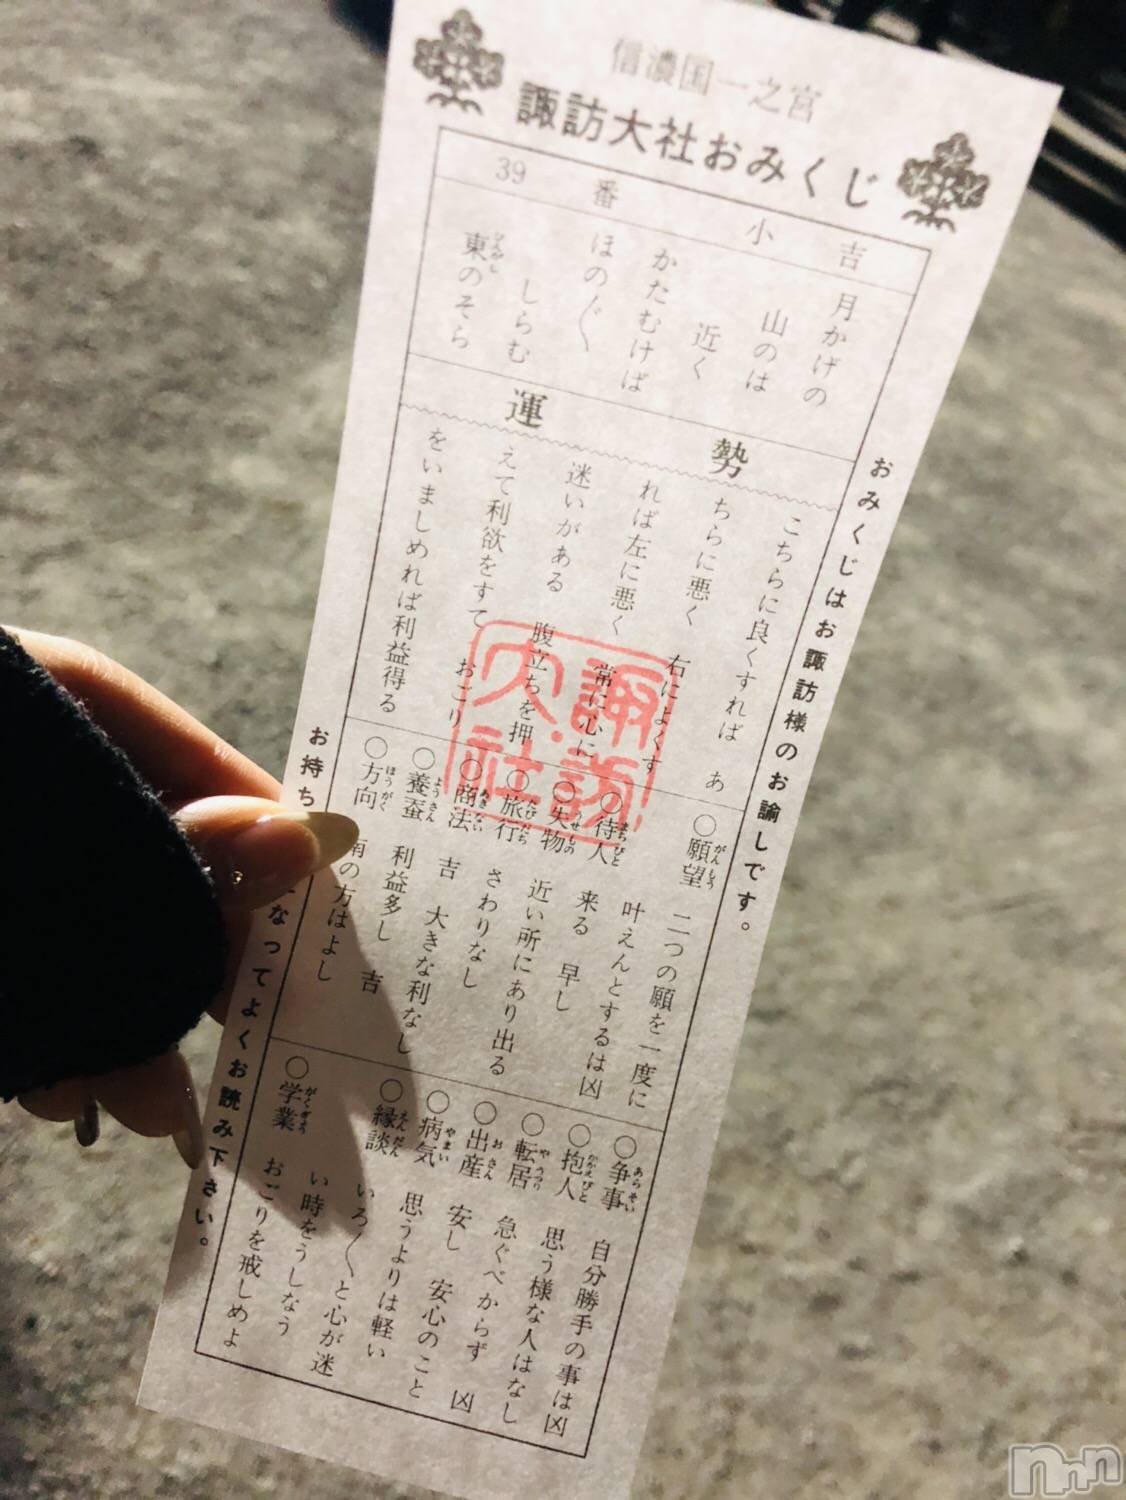 信濃国一之宮
諏訪大社おみくじ
39番 小吉
月かげの
山のは
近く
かたむけば
ほの〴〵
しらむ
東のそら
ひんがし
運勢
こちらに良くすれば あ
ちらに悪く 右によくす
れば左に悪く 常に心に
迷いがある 腹立ちを押
えて利欲をすて おごり
をいましめれば利益得る
○願望 二つの願を一度に
叶えんとするは凶
○待人 来る 早し
○失物 近い所にあり出る
○旅行 さわりなし
○商法 吉 大きな利なし
○養蚕 利益多し 吉
○方向 南の方はよし
○争事 自分勝手の事は凶
○抱人 思う様な人はなし
○転居 急ぐべからず 凶
○出産 安し 安心のこと
○病気 思うよりは軽い
○縁談 いろ〱と心が迷
い時をうしなう
○学業 おごりを戒しめよ
おみくじはお諏訪様のお諭しです。
お持ち
なってよくお読み下さい。
諏訪大社
nnn